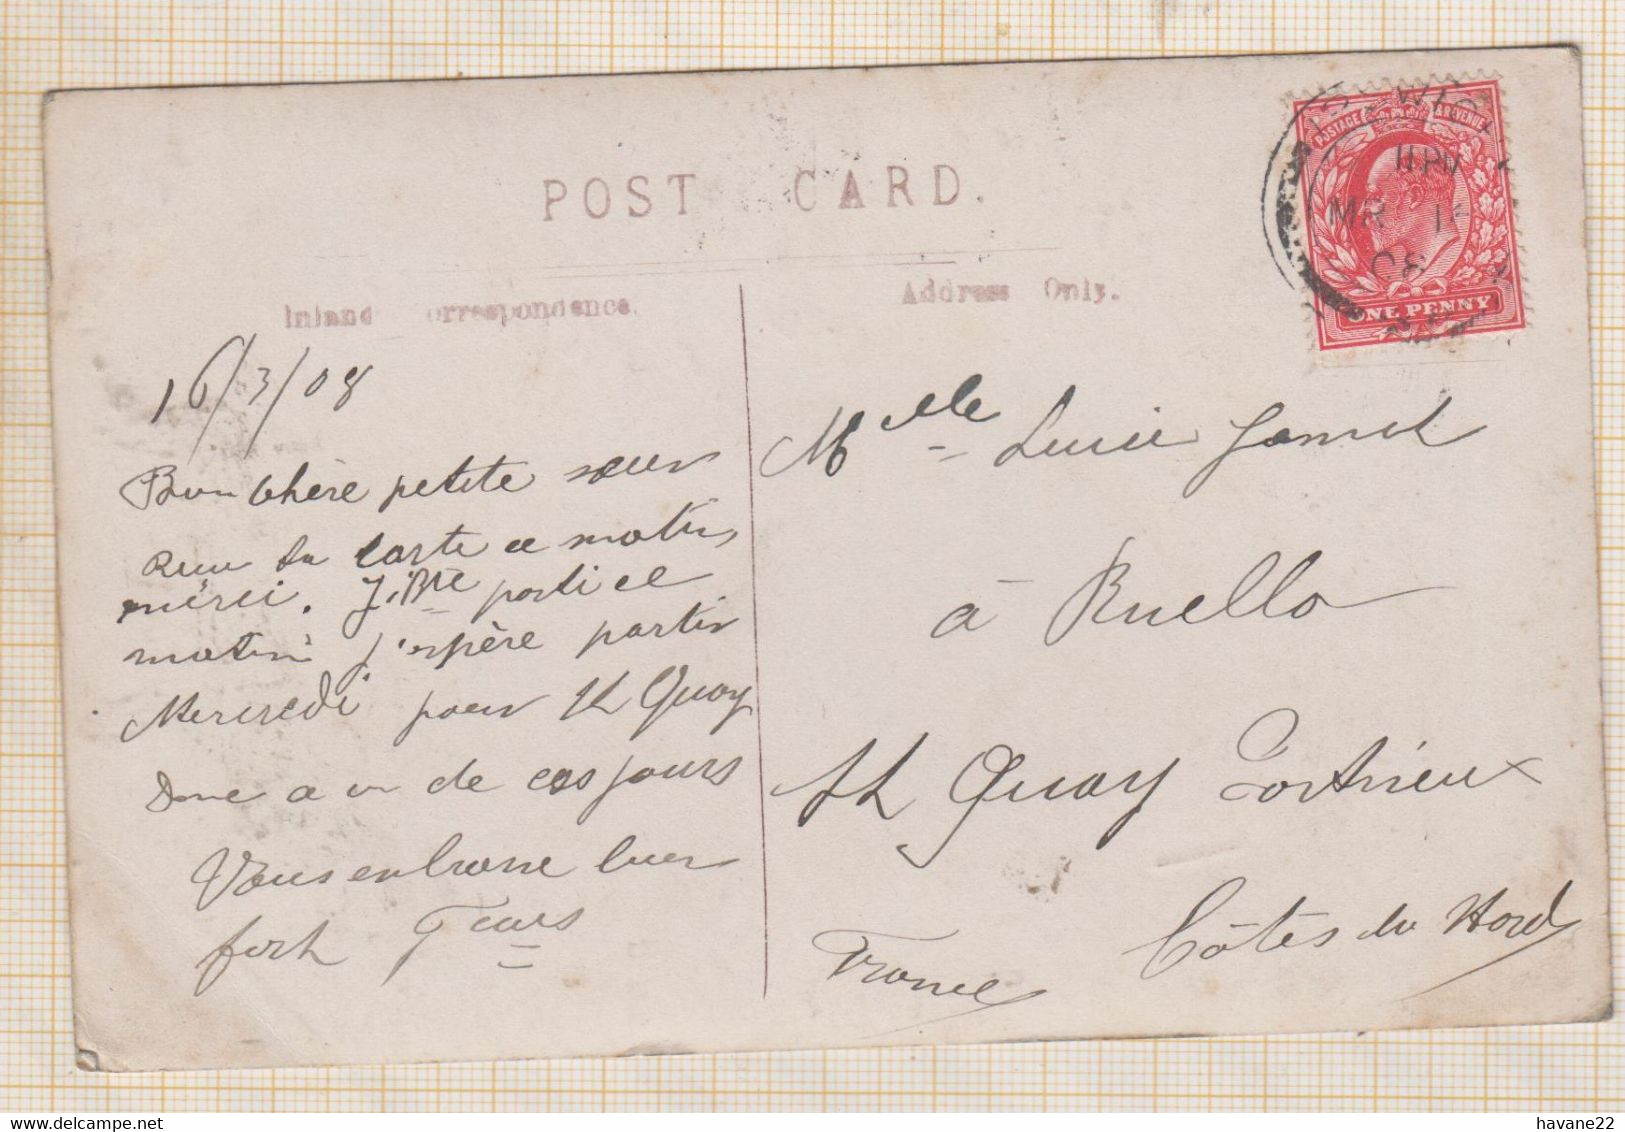 POST CARD.
Inland Correspondence.
Address Only.
POSTAGE & REVENUE
11 PM
MR 16
08
ONE PENNY
16/3/08
Bien chère petite sœur
Reçu ta carte ce matin
mérci. J. Bte parti ce
matin j'espère partir
Mercredi pour St Quay
Donc a un de ces jours
Vous embrasse bien
fort
Melle Lucie
à Ruello
St Quay Portrieux
Côtes du Nord
France
havane22